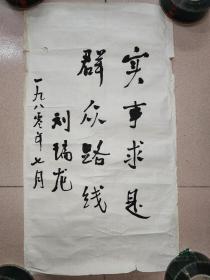 实事求是
群众路线
刘瑞龙
一九八〇年七月